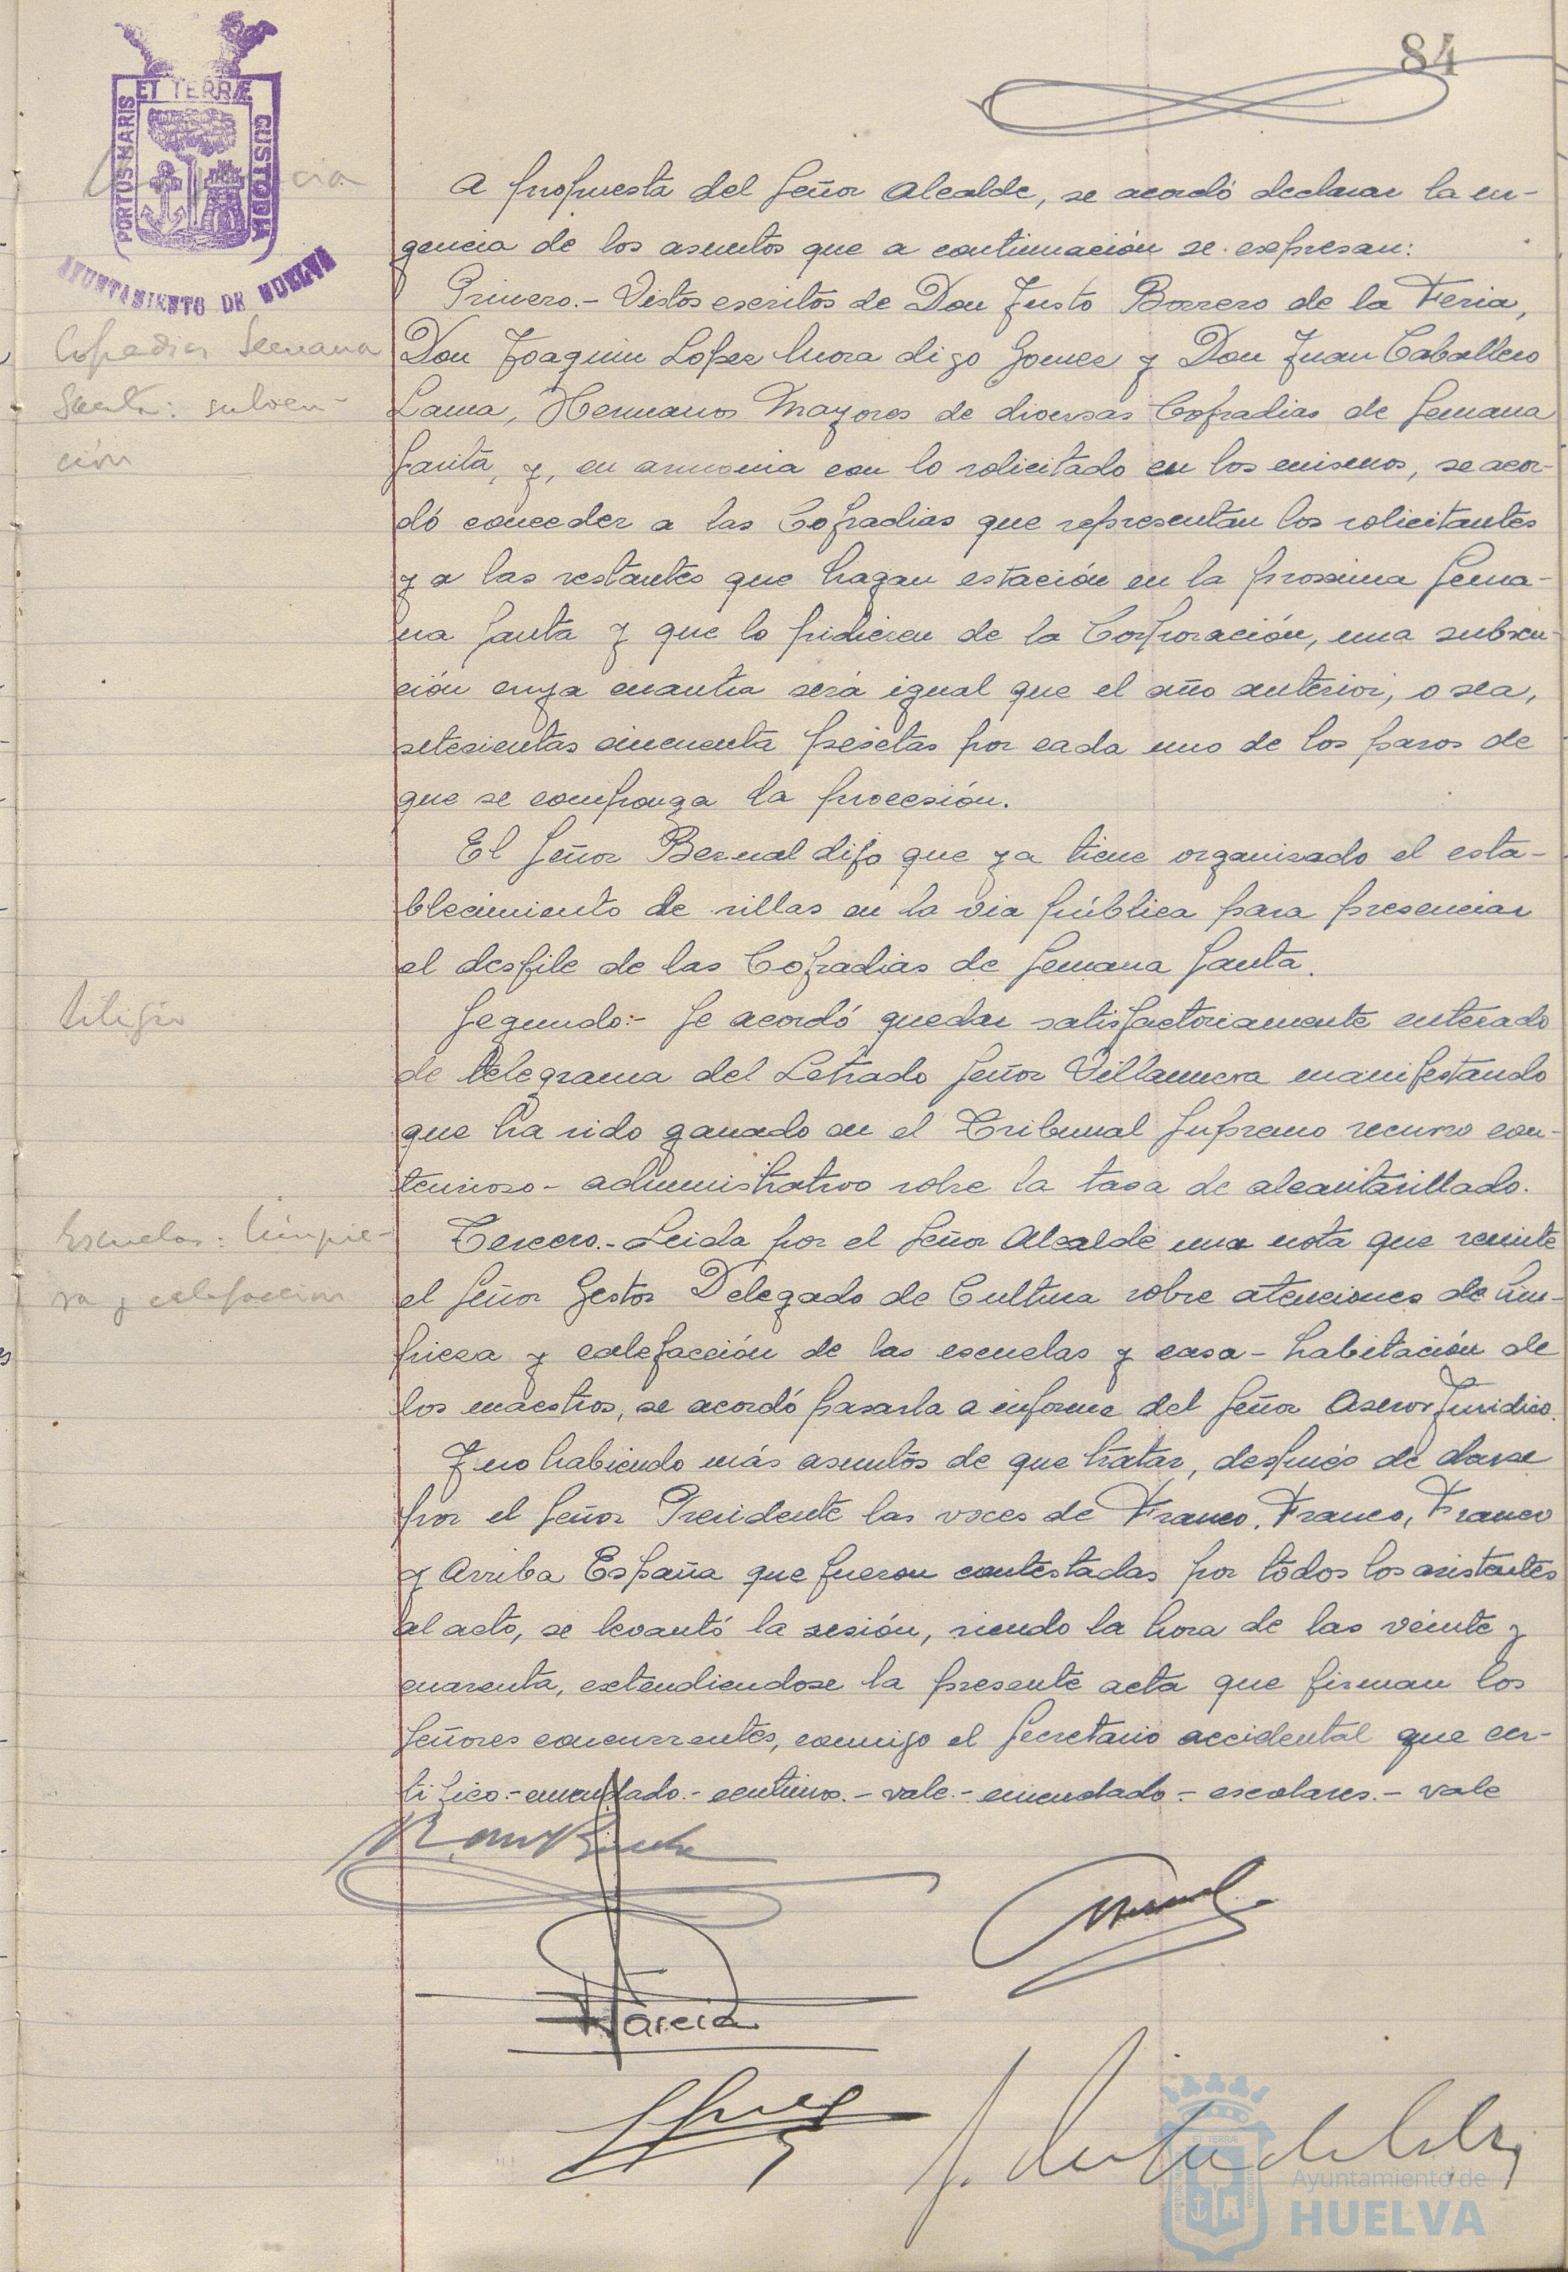 84
ET TERRÆ
PORTUS MARIS
CUSTODIA
AYUNTAMIENTO DE HUELVA
A propuesta del Señor Alcalde, se acordó declarar la ur-
gencia de los asuntos que a continuación se expresan:
Cofradias Semana
Santa: subven-
ción
Primero.- Vistos escritos de Don Justo Borrero de la Feria,
Don Joaquin Lopez Mora digo Gomez y Don Juan Caballero
Lama, Hermanos Mayores de diversas Cofradias de Semana
Santa, y, en armonia con lo solicitado en los mismos, se acor-
dó conceder a las Cofradias que representan los solicitantes
y a las restantes que hagan estación en la proxima Sema-
na Santa y que lo pidieren de la Corporación, una subven-
ción cuya cuantia será igual que el año anterior, o sea,
setesientas cincuenta pesetas por cada uno de los pasos de
que se componga la procesión.
El Señor Bernal dijo que ya tiene organizado el esta-
blecimiento de sillas en la via pública para presenciar
el desfile de las Cofradias de Semana Santa.
Litigio
Segundo:- Se acordó quedar satisfactoriamente enterado
de telegrama del Letrado Señor Villanueva manifestando
que ha sido ganado en el Tribunal Supremo recurso con-
tencioso-administrativo sobre la tasa de alcantarillado.
Escuelas: limpie-
za y calefaccion
Tercero.- Leida por el Señor Alcalde una nota que remite
el Señor Gestor Delegado de Cultura sobre atenciones de lim-
pieza y calefacción de las escuelas y casa-habitación de
los maestros, se acordó pasarla a informe del Señor Asesor Juridico.
Y no habiendo más asuntos de que tratar, después de darse
por el Señor Presidente las voces de Franco, Franco, Franco
y Arriba España que fueron contestadas por todos los asistentes
al acto, se levantó la sesión, siendo la hora de las veinte y
cuarenta, extendiendose la presente acta que firman los
Señores concurrentes, conmigo el Secretario accidental que cer-
tifico.- enmendado.- centimos.- vale.- enmendado.- escolares.- vale
Garcia
Ayuntamiento de
HUELVA